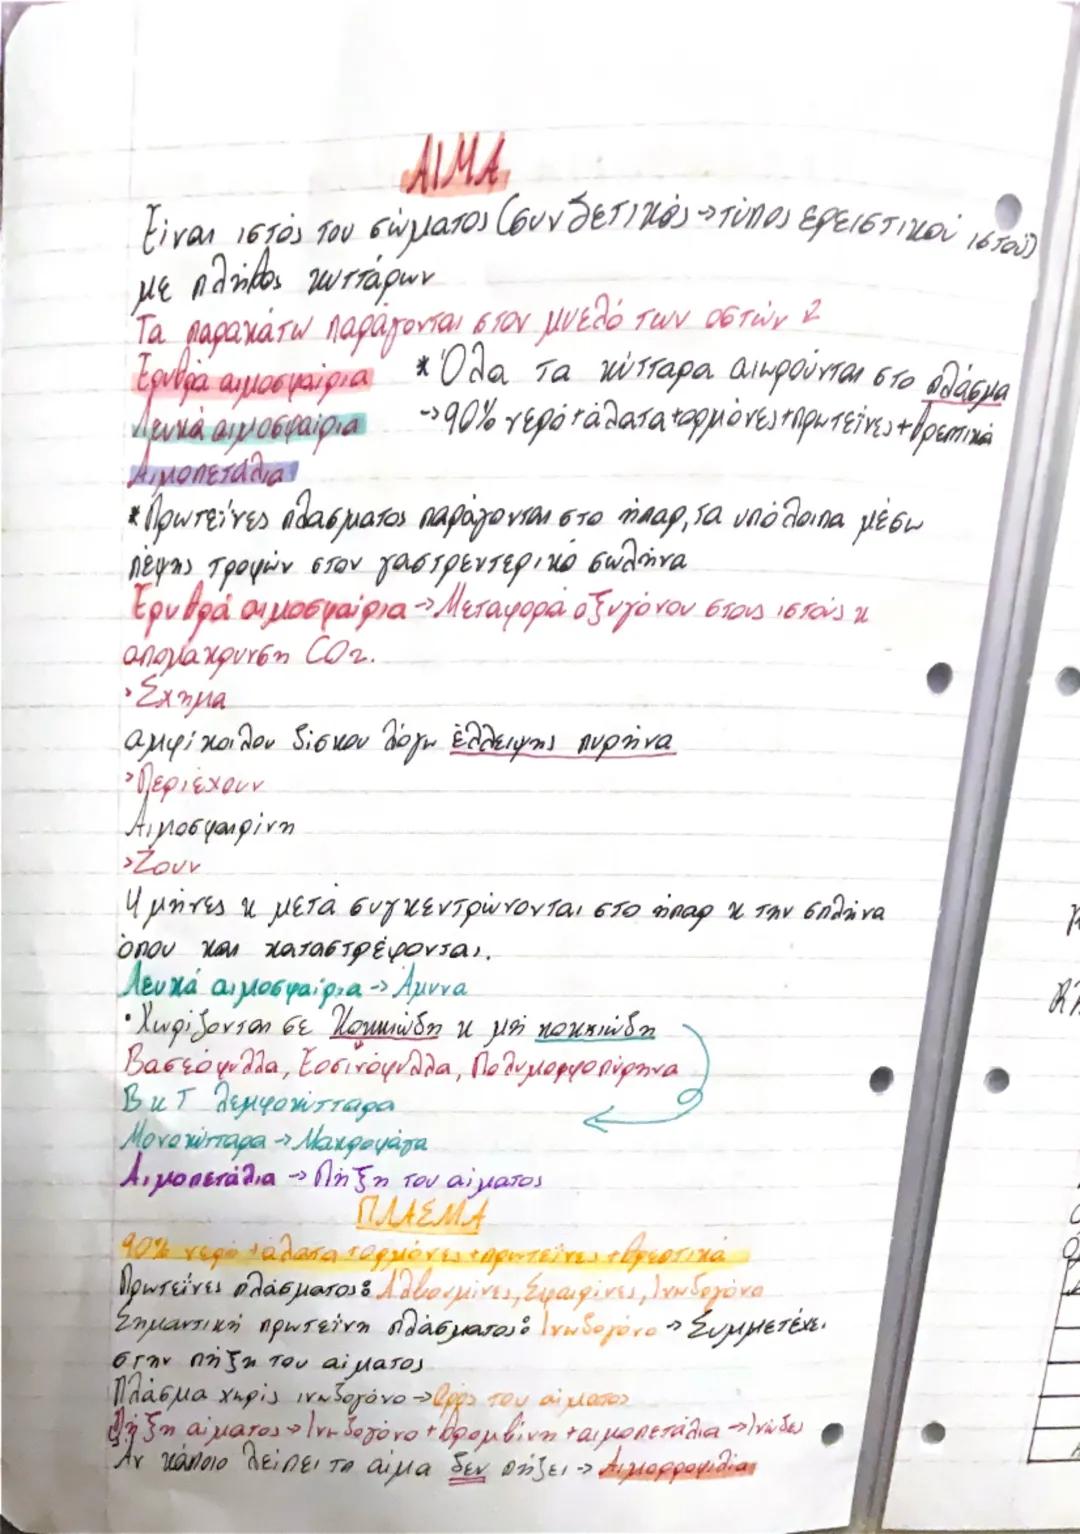 ΑΙΜΑ
Είναι ιστός του σώματος (συνδετικός → τύπος ερειστικού ιστού)
με πλήθος κυττάρων
Τα παρακάτω παράγονται στον μυελό των οστών
Ερυθρά αιμοσφαίρια * Όλα τα κύτταρα αιωρούνται στο πλάσμα
Λευκά αιμοσφαίρια → 90% νερό + άλατα + ορμόνες + πρωτεΐνες + θρεπτικά
Αιμοπετάλια
* Πρωτεΐνες πλάσματος παράγονται στο ήπαρ, τα υπόλοιπα μέσω
πέψης τροφών στον γαστρεντερικό σωλήνα
Ερυθρά αιμοσφαίρια → Μεταφορά οξυγόνου στους ιστούς κ
απομάκρυνση CO2.
> Σχήμα
αμφίκοιλου δίσκου λόγω έλλειψης πυρήνα
> Περιέχουν
Αιμοσφαιρίνη
> Ζουν
4 μήνες κ μετά συγκεντρώνονται στο ήπαρ κ την σπλήνα
όπου και καταστρέφονται.
Λευκά αιμοσφαίρια → Άμυνα
• Χωρίζονται σε Κοκκιώδη κ μη κοκκιώδη
Βασεόφυλλα, Εοσινόφυλλα, Πολυμορφοπύρηνα
Β κ Τ λεμφοκύτταρα
Μονοκύτταρα → Μακροφάγα
Αιμοπετάλια → Πήξη του αίματος
ΠΛΑΣΜΑ
90% νερό + άλατα + ορμόνες + πρωτεΐνες + θρεπτικά
Πρωτεΐνες πλάσματος: Αλβουμίνες, Σφαιρίνες, Ινωδογόνο
Σημαντική πρωτεΐνη πλάσματος: Ινωδογόνο → Συμμετέχει
στην πήξη του αίματος
Πλάσμα χωρίς ινωδογόνο → Ορός του αίματος
Πήξη αίματος → Ινωδογόνο + θρομβίνη + αιμοπετάλια → Ινώδες
Αν κάποιο λείπει το αίμα δεν πήζει → Αιμορροφιλία